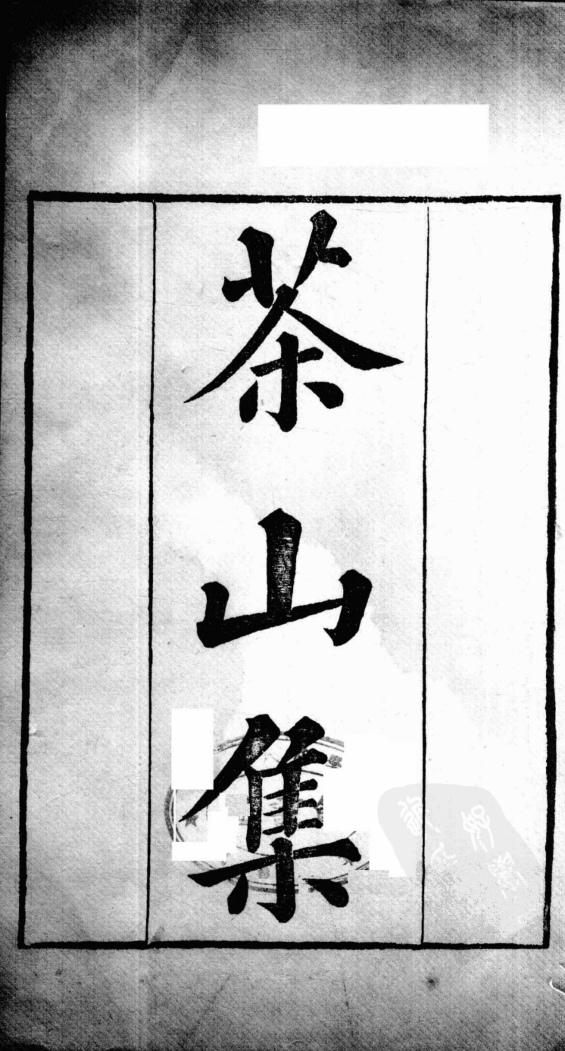 茶山集